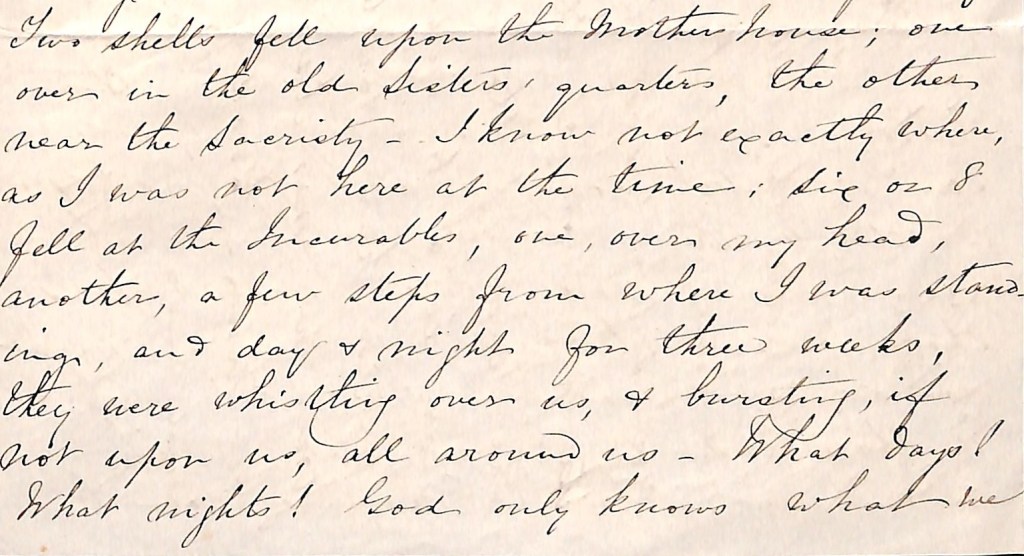 Two shells fell upon the Mother house; one
over in the old Sisters' quarters, the other
near the Sacristy - I know not exactly where,
as I was not here at the time; six or 8
fell at the Incurables, one, over my head,
another, a few steps from where I was stand-
ing, and day & night for three weeks,
they were whistling over us, & bursting, if
not upon us, all around us - What days!
What nights! God only knows what we